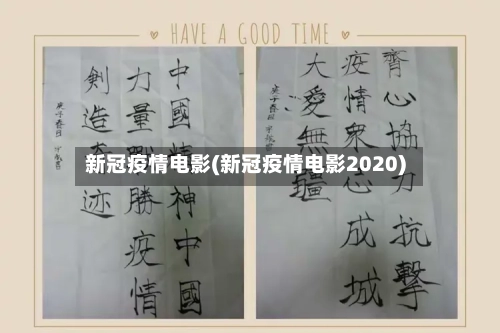 HAVE A GOOD TIME
中國精神中國
力量戰勝疫情
創造奇迹
庚子春日
齊心協力抗擊
疫情衆志成城
大愛無疆
庚子春日
新冠疫情电影(新冠疫情电影2020)